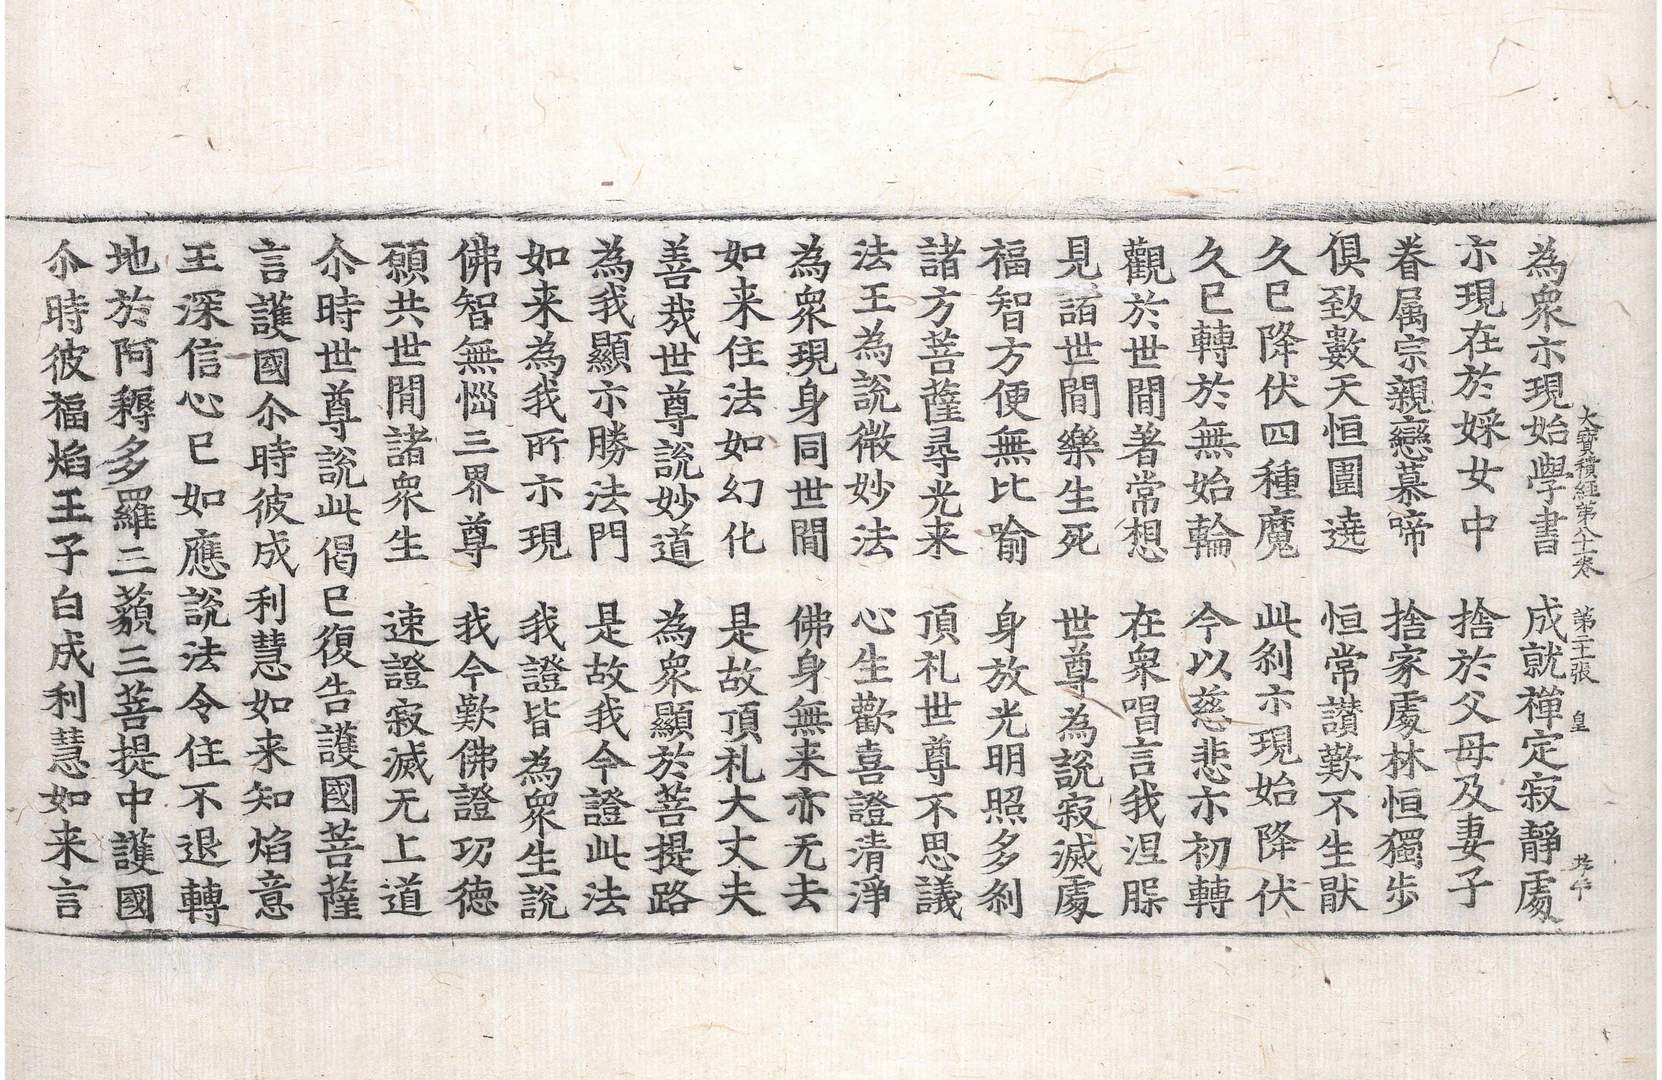 大寶積經第八十一卷 第二十張 皇
為衆示現始學書 成就禪定寂靜處
示現在於婇女中 捨於父母及妻子
眷属宗親戀慕啼 捨家處林恒獨步
俱致數天恒圍遶 恒常讃歎不生猒
久已降伏四種魔 此刹示現始降伏
久已轉於無始輪 今以慈悲示初轉
觀於世間著常想 在衆唱言我涅槃
見諸世間樂生死 世尊為說寂滅處
福智方便無比喻 身放光明照多刹
諸方菩薩尋光来 頂礼世尊不思議
法王為說微妙法 心生歡喜證清淨
為衆現身同世間 佛身無来亦无去
如来住法如幻化 是故頂礼大丈夫
善哉世尊說妙道 為衆顯於菩提路
為我顯示勝法門 是故我今證此法
如来為我所示現 我證皆為衆生說
佛智無惱三界尊 我今歎佛證功德
願共世間諸衆生 速證寂滅无上道
尒時世尊說此偈已復告護國菩薩
言護國尒時彼成利慧如来知焰意
王深信心已如應說法令住不退轉
地於阿耨多羅三藐三菩提中護國
尒時彼福焰王子白成利慧如来言